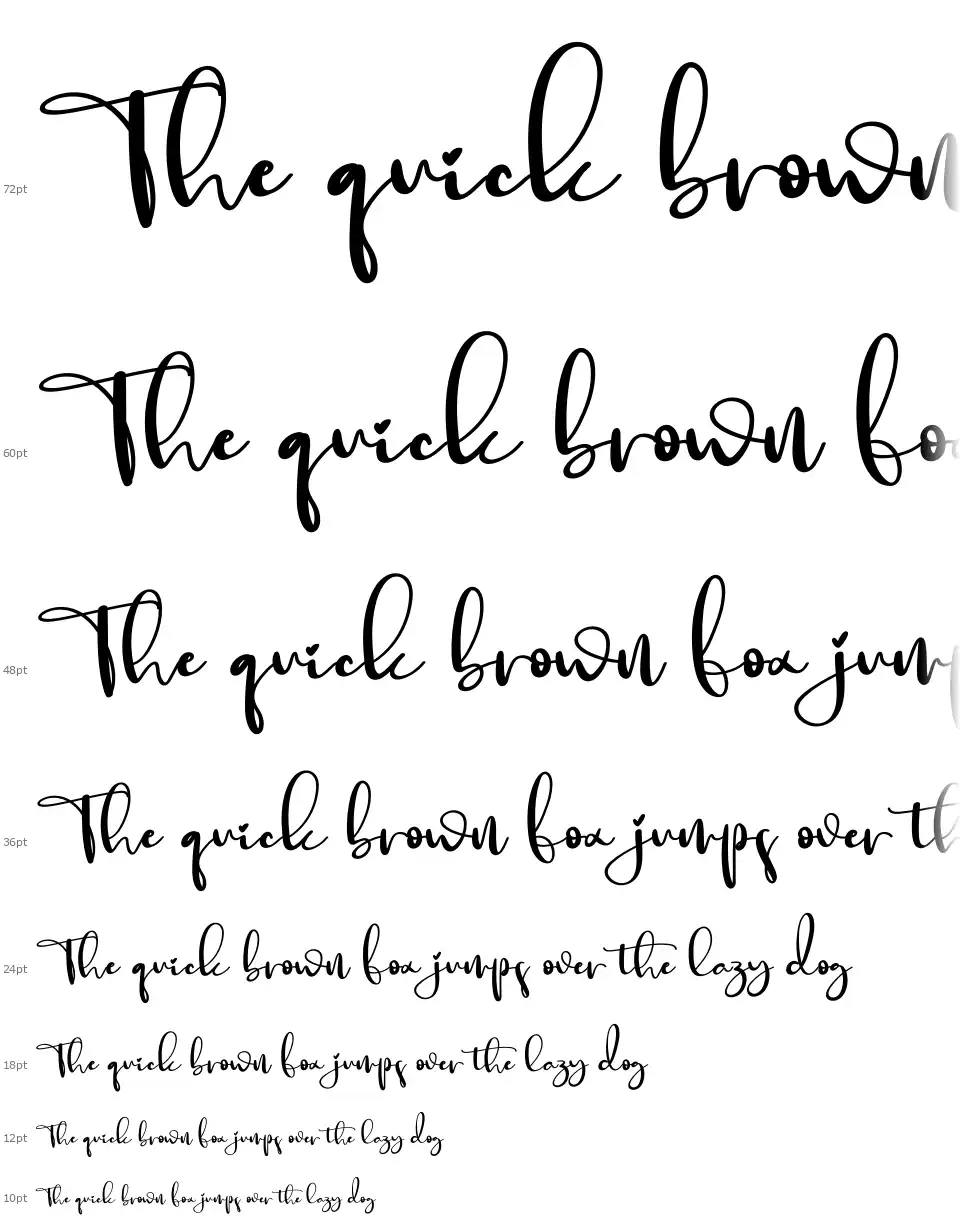 72pt The quick brown
60pt The quick brown fo
48pt The quick brown fox jum
36pt The quick brown fox jumps over th
24pt The quick brown fox jumps over the lazy dog
18pt The quick brown fox jumps over the lazy dog
12pt The quick brown fox jumps over the lazy dog
10pt The quick brown fox jumps over the lazy dog